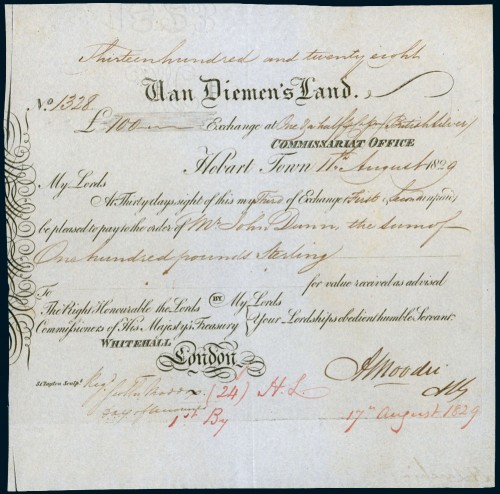 Thirteen hundred and twenty eight
Van Diemen's Land.
No. 1328
£100 Exchange at One & a half for British Silver
COMMISSARIAT OFFICE
Hobart Town 11th August 1829
My Lords
At Thirty days sight of this my Third of Exchange (First & Second unpaid)
be pleased to pay to the order of Mr John Dunn the sum of
One hundred pounds Sterling
for value received as advised
To
The Right Honourable the Lords BY My Lords
Commissioners of His Majesty's Treasury Your Lordships obedient humble Servant
WHITEHALL
London
A Moodie
(24) H.L.
1st By
17th August 1829